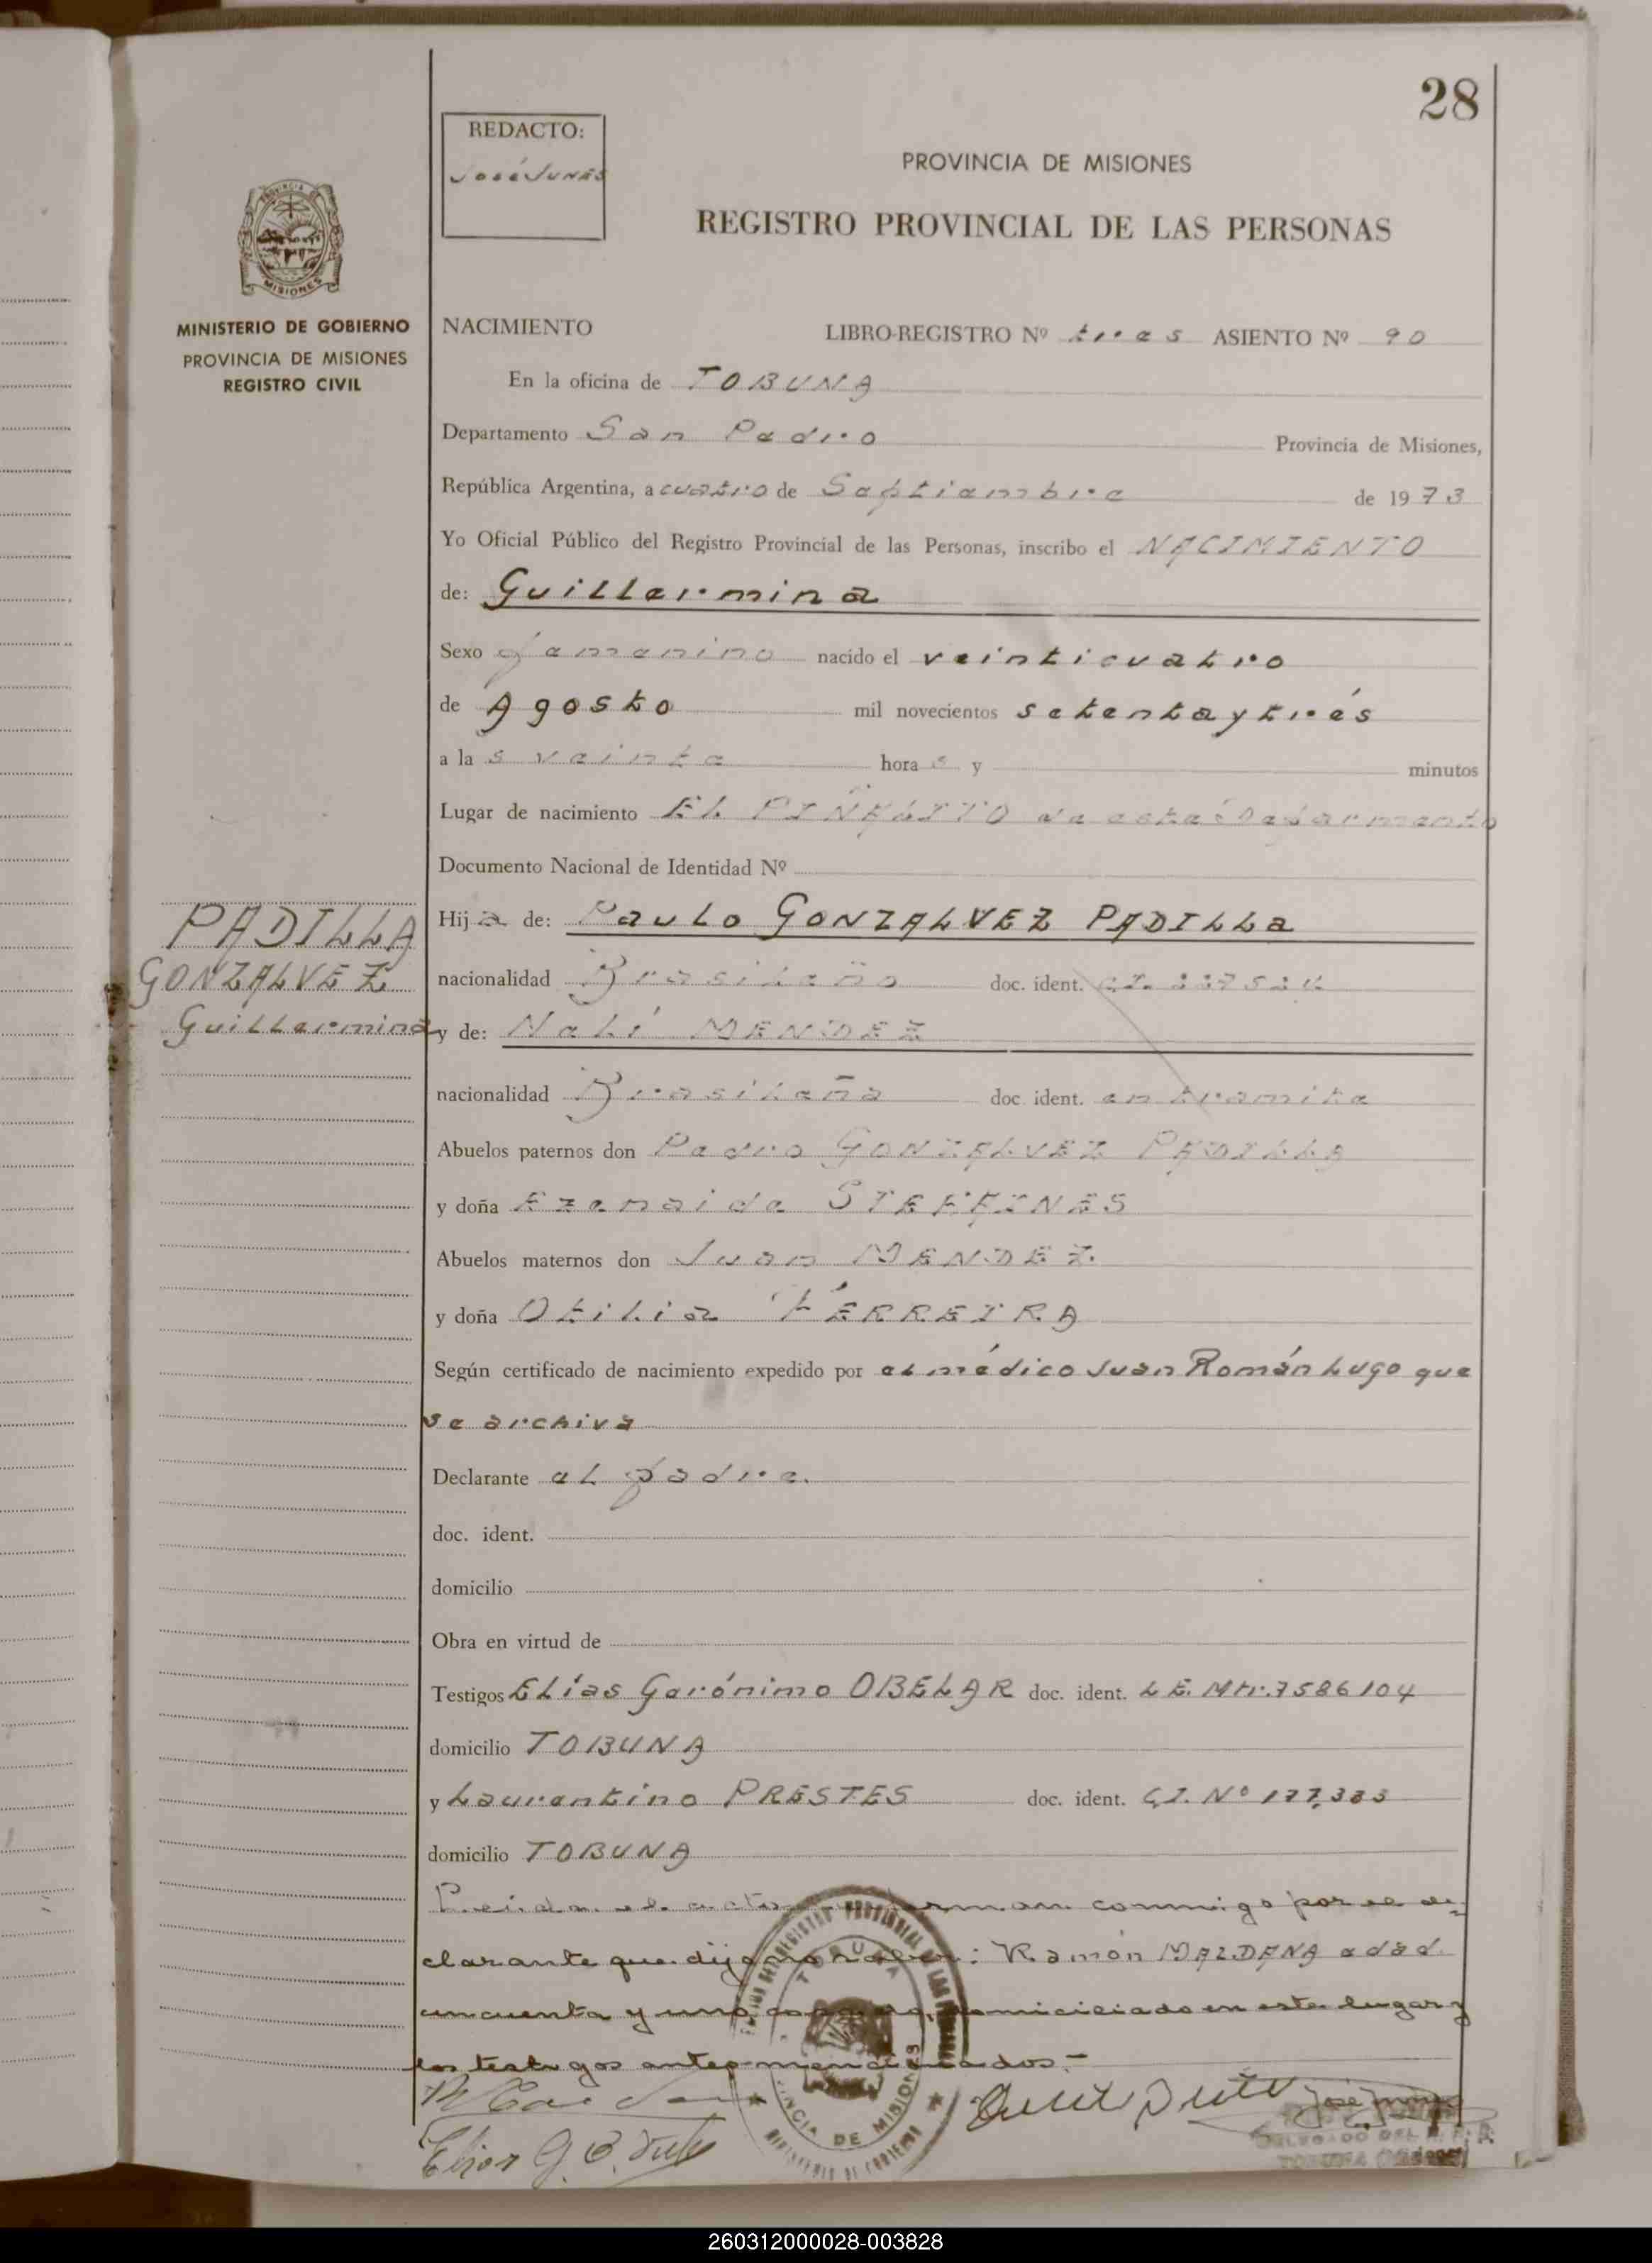 28
REDACTO:
José Junes
PROVINCIA DE MISIONES
REGISTRO PROVINCIAL DE LAS PERSONAS
MINISTERIO DE GOBIERNO
PROVINCIA DE MISIONES
REGISTRO CIVIL
NACIMIENTO LIBRO-REGISTRO Nº tres ASIENTO Nº 90
En la oficina de TOBUNA
Departamento San Pedro Provincia de Misiones,
República Argentina, a cuatro de Septiembre de 1973
Yo Oficial Público del Registro Provincial de las Personas, inscribo el NACIMIENTO
de: Guillermina
Sexo femenino nacido el veinticuatro
de Agosto mil novecientos setenta y trés
a las veinte horas y minutos
Lugar de nacimiento EL PIÑALITO de este
Documento Nacional de Identidad Nº
Hija de: Paulo GONZALVEZ PADILLA
PADILLA
GONZALVEZ
Guillermina
nacionalidad Brasileño doc. ident. C.I.
y de: Nelí MENDEZ
nacionalidad Brasileña doc. ident. en tramite
Abuelos paternos don Pedro GONZALVEZ PADILLA
y doña Ezenaide STEFFINES
Abuelos maternos don Juan MENDEZ.
y doña Otilia FERREIRA
Según certificado de nacimiento expedido por el médico Juan Román Lugo que
se archiva
Declarante el padre.
doc. ident.
domicilio
Obra en virtud de
Testigos Elías Gerónimo OBELAR doc. ident. L.E. Mtr. 7586104
domicilio TOBUNA
y Laurentino PRESTES doc. ident. C.I. Nº 177.333
domicilio TOBUNA
Leida el acta firman conmigo por el de-
clarante que dijo no saber: Ramón MALDANA edad
cincuenta y uno domiciliado en este lugar y
los testigos antes mencionados.-
TOBUNA
PROVINCIA DE MISIONES
José Junes
DELEGADO DEL R. P. P.
TOBUNA (Misiones)
260312000028-003828